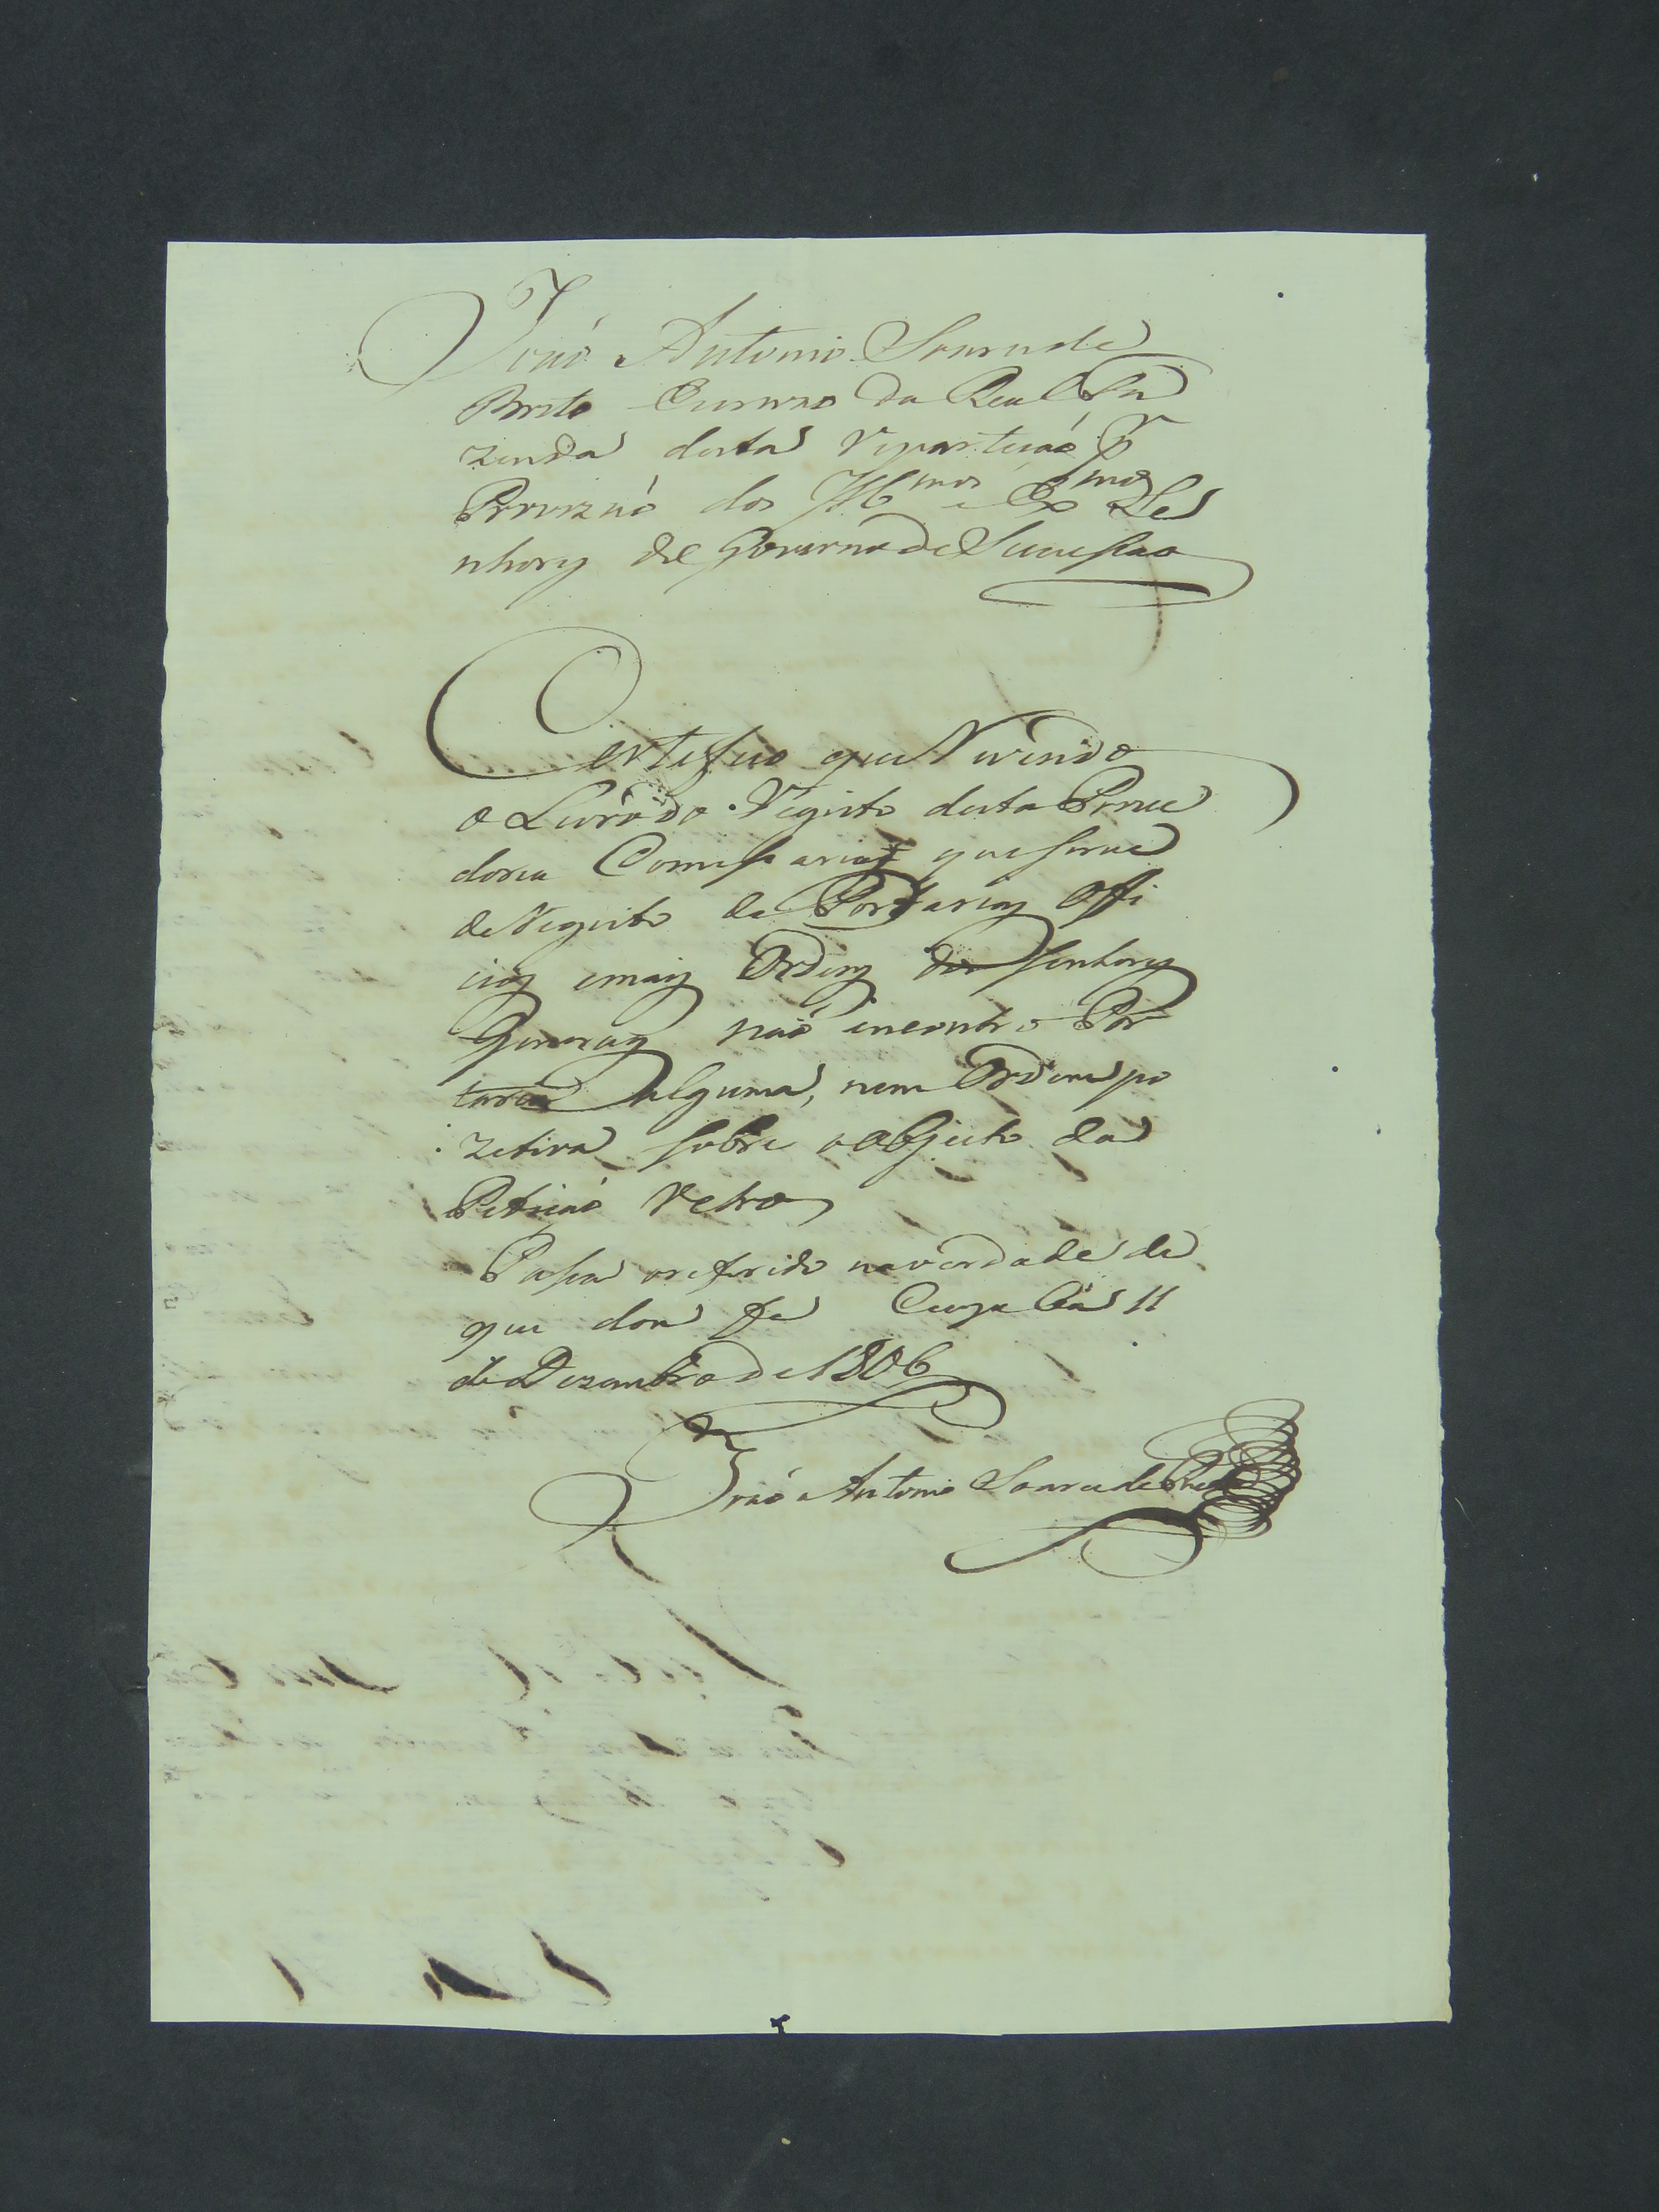 João Antonio Soares de
Brito Escrivaõ da Real Fa
zenda desta Repartiçaõ p
Provizaõ dos Illmos e Exmos Se
nhores do Governo de Sucessao
Certifico que Revendo
o Livro do Registo desta Prove
doria Comissaria que serve
de Registo de Portarias Offi
cios e mais Ordens dos Senhores
Generaes naõ encontro Por
taria alguma, nem Ordem po
zetiva sobre o objecto da
Petiçaõ Retro
Passa o referido na verdade de
que dou fe Cuyabá 11
de Dezembro de 1806
João Antonio Soares de Brito